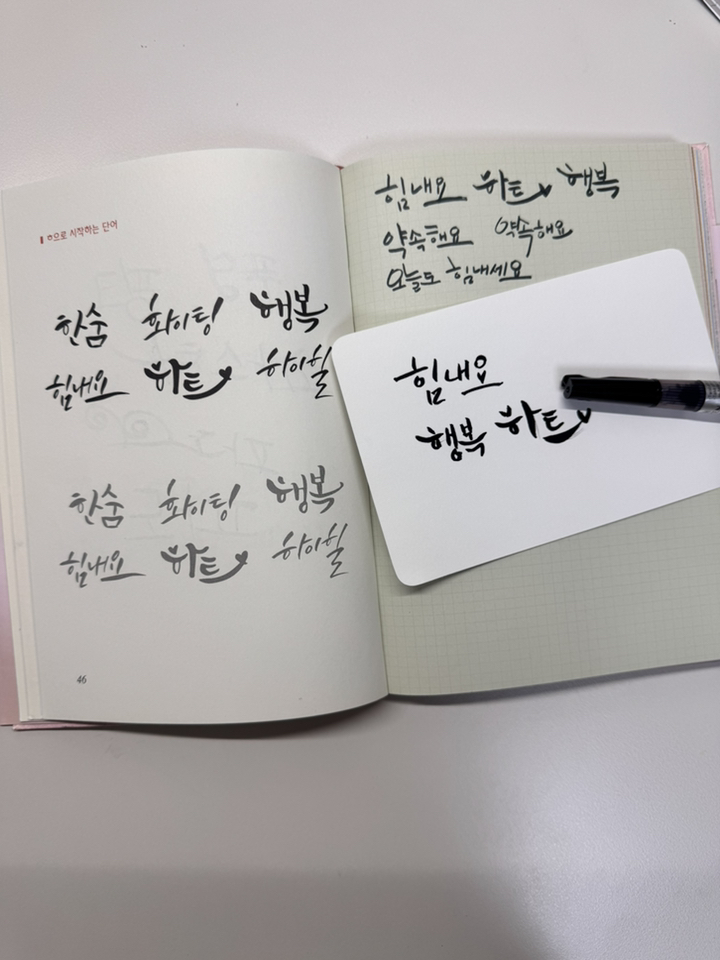 ㅎ으로 시작하는 단어
한숨 화이팅 행복
힘내요 하트 하이힐
한숨 화이팅 행복
힘내요 하트 하이힐
46
힘내요 하트 행복
약속해요 약속해요
오늘도 힘내세요
힘내요
행복 하트